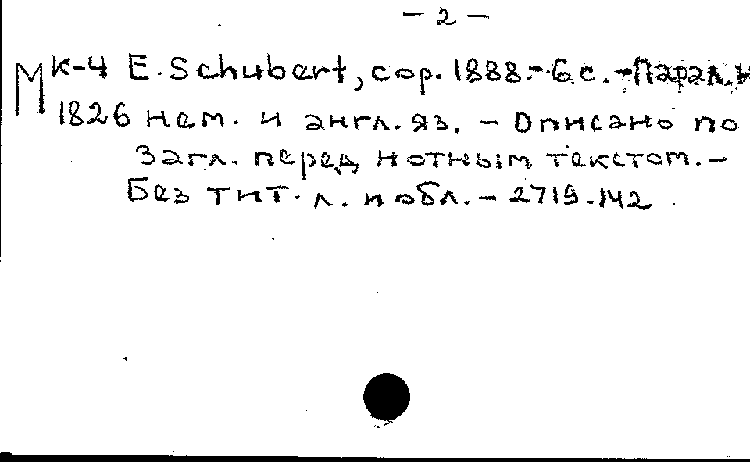 – 2 –
М К-4 E. Schubert, cop. 1888. – 6 с. – Парал.
1826 нем. и англ. яз. – Описано по
загл. перед нотным текстом. –
Без тит. л. и обл. – 2719-142